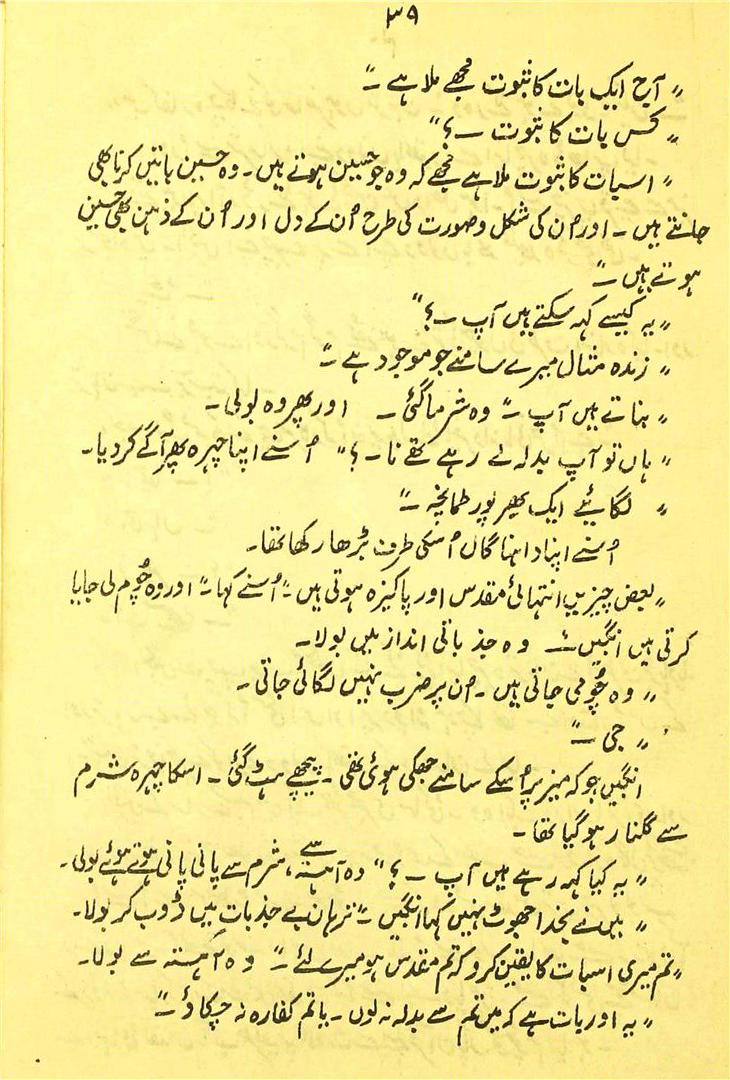 ۳۹
" آج ایک بات کا ثبوت مجھے ملا ہے ـ"
" کس بات کا ثبوت ـ؟"
" اسبات کا ثبوت ملا ہے مجھے کہ وہ جو حسین ہوتے ہیں ـ وہ حسین باتیں کرنا بھی
جانتے ہیں ـ اور اُن کی شکل و صورت کی طرح اُن کے دل اور اُن کے ذہن بھی حسین
ہوتے ہیں ـ"
" یہ کیسے کہہ سکتے ہیں آپ ـ؟"
" زندہ مثال میرے سامنے جو موجود ہے ـ"
" بناتے ہیں آپ ـ" وہ شرما گئی ـ اور پھر وہ بولی ـ
" ہاں تو آپ بدلہ لے رہے تھے نا ـ؟" اُسنے اپنا چہرہ پھر آگے کر دیا ـ
" لگائیے ایک بھرپور طمانچہ ـ"
اُسنے اپنا داہنا گال اُسکی طرف بڑھا رکھا تھا ـ
" بعض چیزیں انتہائی مقدس اور پاکیزہ ہوتی ہیں ـ" اُسنے کہا ـ" اور وہ چُوم لی جایا
کرتی ہیں انگیں ـ" وہ جذباتی انداز میں بولا ـ
" وہ چُومی جاتی ہیں ـ اُن پر ضرب نہیں لگائی جاتی ـ
" جی ـ"
انگیں جو کہ میز پر اُسکے سامنے جھکی ہوئی تھی ـ پیچھے ہٹ گئی ـ اسکا چہرہ شرم
سے گلنار ہو گیا تھا ـ
" یہ کیا کہہ رہے ہیں آپ ـ؟" وہ آہستہ سے، شرم سے پانی پانی ہوتے ہوئے بولی ـ
" میں نے بخدا جھوٹ نہیں کہا انگیں ـ" نریمان بے جذبات میں ڈوب کر بولا ـ
" تم میری اسبات کا یقین کرو کہ تم مقدس ہو میرے لئے ـ" وہ آہستہ سے بولا ـ
" یہ اور بات ہے کہ میں تم سے بدلہ نہ لوں ـ یا تم کفارہ نہ چکاؤ ـ"